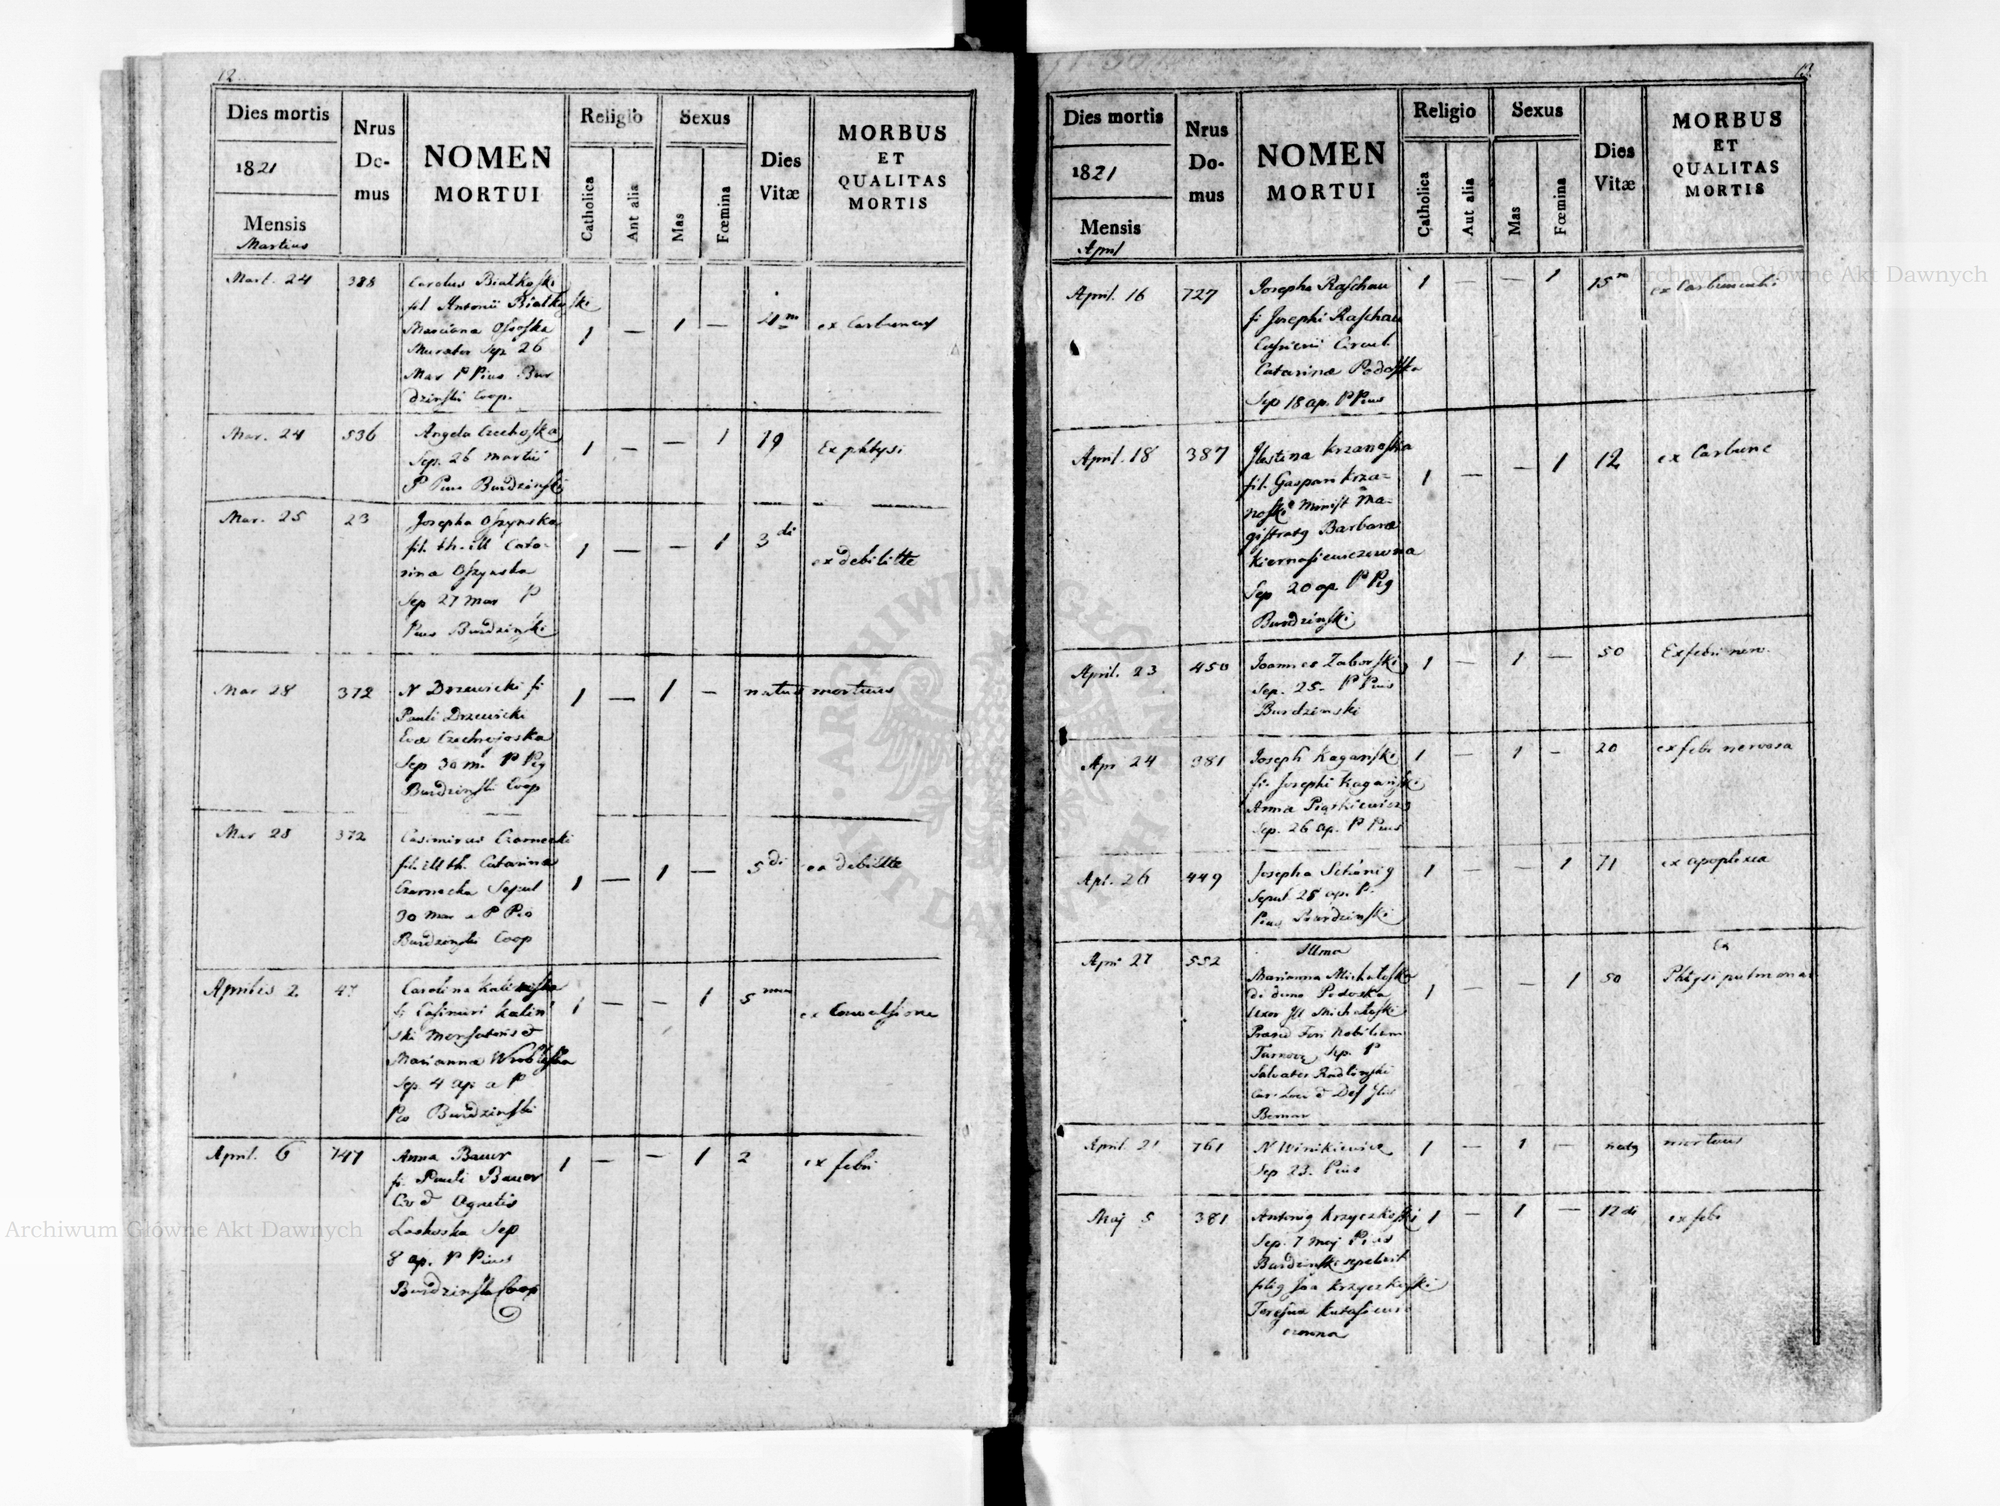 12.
Dies mortis
1821
Mensis
Martius
Nrus
Do-
mus
NOMEN
MORTUI
Religio
Catholica
Aut alia
Sexus
Mas
Fœmina
Dies
Vitæ
MORBUS
ET
QUALITAS
MORTIS
Mart. 24 388 Carolus Białkoski
fil Antonii Białkoski
Marciana
Murator Sep. 26
Mar P Pius Bur
dzinski Coop.
1 — 1 — 4 m ex
Mar. 24 536 Angela Czechoska
Sep. 26 Martii
P Pius Burdzinski
1 — — 1 19 Ex phtysi
Mar. 25 23 Josepha Oszynska
fil. th. ill Cata-
rina Oszynska
Sep 27 Mar P
Pius Burdzinski
1 — — 1 3 di ex debilitte
Mar 28 372 N Drzewicki fi
Pauli Drzewicki
Eva
Sep 30 m. P Pig
Burdzinski Coop
1 — 1 — natus mortuus
Mar 28 372 Casimirus Czarnecki
fil. ill th. Catarina
Czarnecka Sepul
30 Mar a P Pio
Burdzinski Coop
1 — 1 — 5 di ex debilitte
Aprilis 2. 47 Carolina Kalinska
fi Casimiri Kalin
ski et
Marianna
Sep. 4 ap a P
Pio Burdzinski
1 — — 1 5 ex Convulsione
April. 6 747 Anna Bauer
fi. Pauli Bauer
Civ et Agnetis
Laskoska Sep
8 ap. P Pius
Burdzinski Coop
1 — — 1 2 ex febri
13.
Dies mortis
1821
Mensis
April
Nrus
Do-
mus
NOMEN
MORTUI
Religio
Catholica
Aut alia
Sexus
Mas
Fœmina
Dies
Vitæ
MORBUS
ET
QUALITAS
MORTIS
April. 16 727 Josepha Raschau
fi Josephi Raschau
Circul.
Catarina Podoska
Sep 18 ap. P Pius
1 — — 1 15 m ex
April. 18 387 Justina Krzanoska
fil. Gaspari Krza-
noski Minist Ma-
gistratg Barbara
Kiernasiewiczowna
Sep 20 ap. P Pig
Burdzinski
1 — — 1 12 ex Carbunc
April. 23 450 Joannes Zaborski
Sep. 25. P Pius
Burdzinski
1 — 1 — 50 Ex febri nerv.
Apr 24 381 Joseph Kaganski
fi. Josephi Kaganski
Anna Piaskiewicz
Sep. 26 ap. P Pius
1 — 1 — 20 ex febr nervosa
Apr. 26 449 Josepha Schönig
Sepul 28 ap. P.
Pius Burdzinski
1 — — 1 71 ex apoplexia
Apri 27 552 Illma
Marianna Michałoska
de domo Podoska
Uxor Ill Michałoski
Praesid Fori Nobilium
Tarnov, Sep. P
Salvator Radlinski
Bernar
1 — — 1 50 Ex
Phtysi pulmona
April. 21 761 N Winikiewicz
Sep 23. Pius
1 — 1 — natg mortuus
Maj 5 381 Antonig Krzyczkoski
Sep. 7 maj Pius
Burdzinski sepelivit
filig Jan Krzyczkoski
1 — 1 — 12 di ex febr
Archiwum Główne Akt Dawnych
Archiwum Główne Akt Dawnych
ARCHIWUM GŁÓWNE AKT DAWNYCH